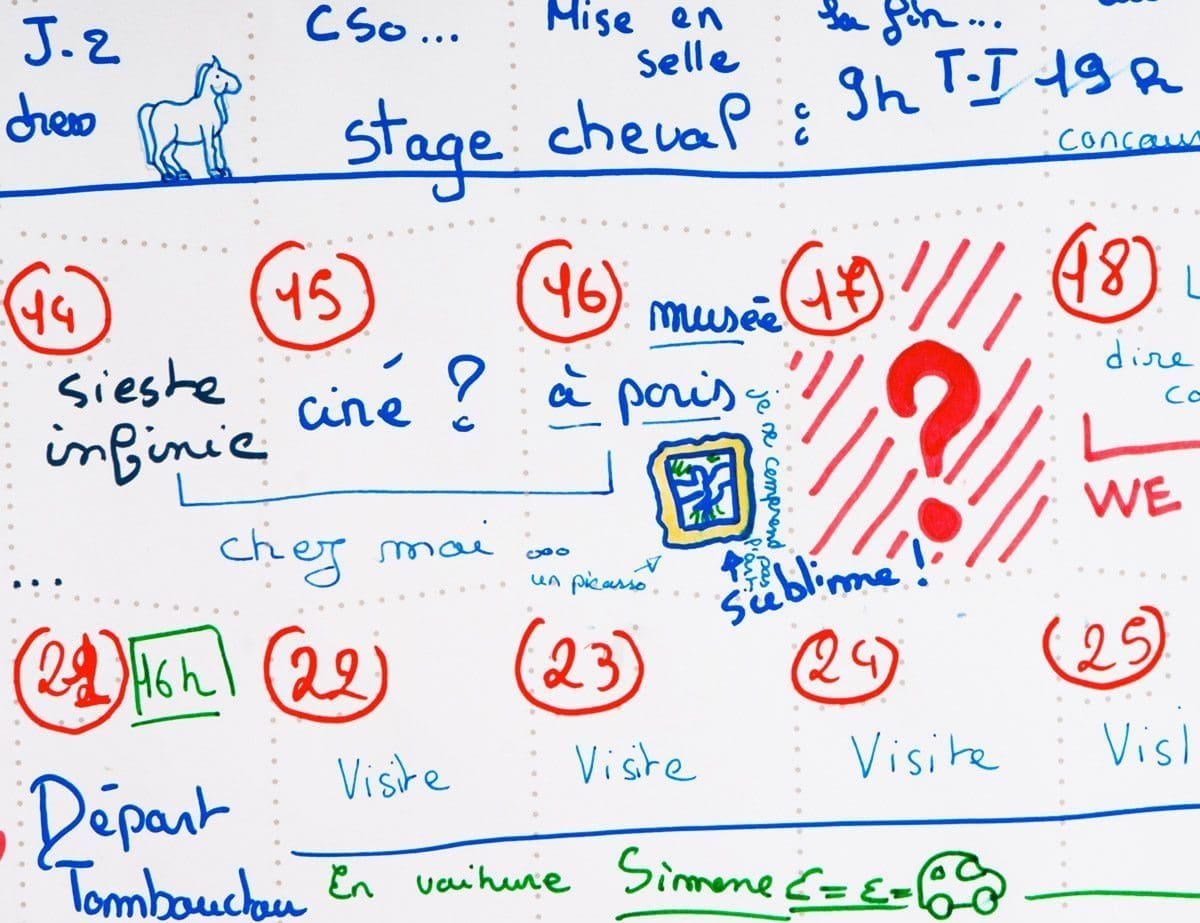 J-2
CSO...
Mise en
selle
la fin...
stage cheval : 9h T-T 19 h
concou
14
15
16
17
18
musée
sieste
infinie
ciné ?
à paris
je ne comprend pas
dire
co
WE
chez moi ...
un picasso
sublime !
...
21 16h
22
23
24
25
Visite
Visite
Visite
Visi
Départ
Tombouctou
En voiture Simone